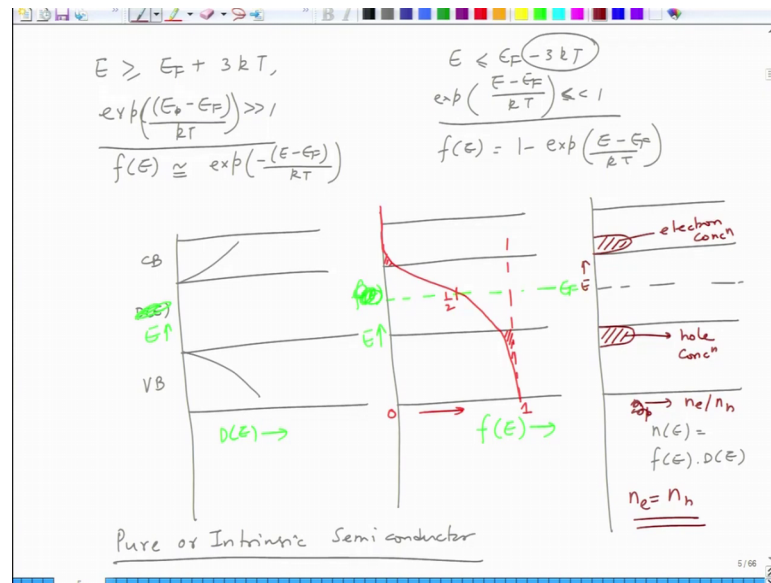 E ≥ E_F + 3kT,
exp((E - E_F)/kT) >> 1
f(E) ≅ exp(-(E - E_F)/kT)
E ≤ E_F - 3kT
exp((E - E_F)/kT) << 1
f(E) = 1 - exp((E - E_F)/kT)
CB
E↑
VB
D(E) →
1/2
E_F
E↑
0 → 1
f(E) →
electron
concⁿ
↑
E
hole
concⁿ
→ n_e/n_h
n(E) =
f(E).D(E)
n_e = n_h
Pure or Intrinsic Semiconductor
5 / 66